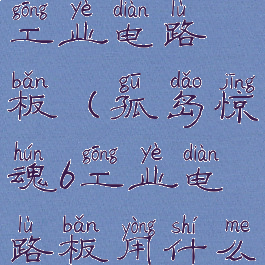 gōng yè diàn lù
工业电路
bǎn gū dǎo jīng
板（孤岛惊
hún gōng yè diàn
魂6工业电
lù bǎn yòng shí me
路板用什么